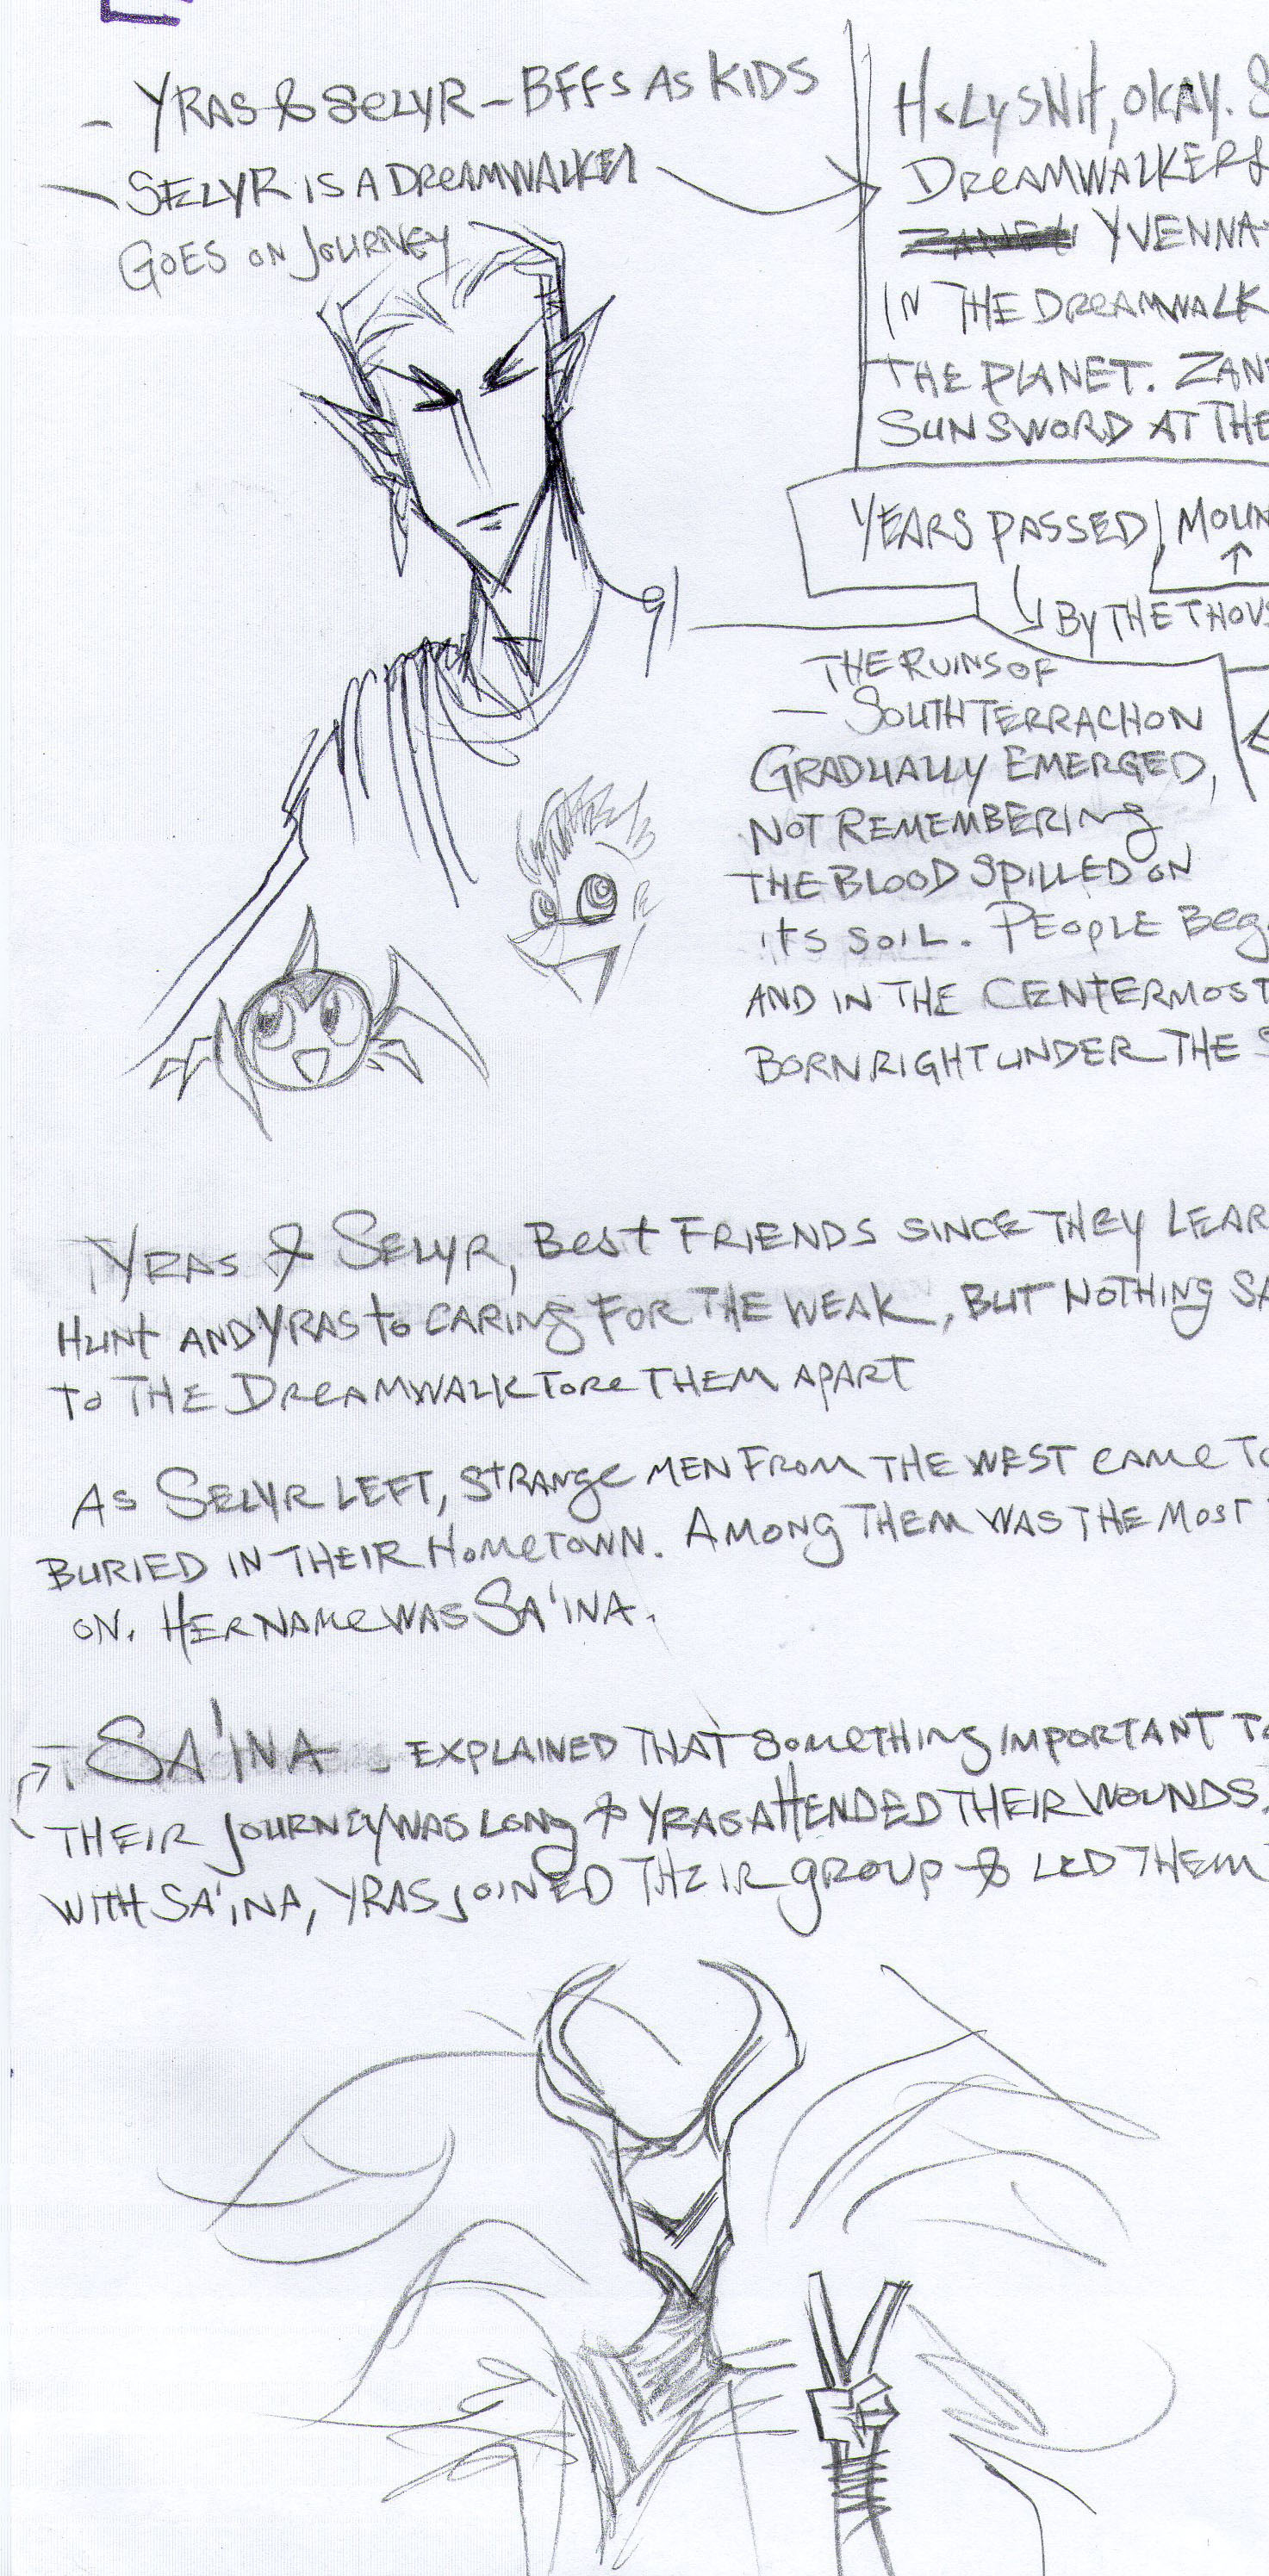 - YRAS & SELYR - BFFS AS KIDS
- SELYR IS A DREAMWALKER
GOES ON JOURNEY
HOLY SHIT, OKAY. &
DREAMWALKERS
YVENNA
IN THE DREAMWALK
THE PLANET. ZAN
SUNSWORD AT THE
YEARS PASSED | MOUN
BY THE THOUS
THE RUINS OF
- SOUTH TERRACHON
GRADUALLY EMERGED,
NOT REMEMBERING
THE BLOOD SPILLED ON
ITS SOIL. PEOPLE BEG
AND IN THE CENTERMOST
BORN RIGHT UNDER THE S
YRAS & SELYR, BEST FRIENDS SINCE THEY LEAR
HUNT AND YRAS TO CARING FOR THE WEAK, BUT NOTHING SA
TO THE DREAMWALK TORE THEM APART
AS SELYR LEFT, STRANGE MEN FROM THE WEST CAME TO
BURIED IN THEIR HOMETOWN. AMONG THEM WAS THE MOST
ON. HER NAME WAS SA'INA.
SA'INA - EXPLAINED THAT SOMETHING IMPORTANT TO
THEIR JOURNEY WAS LONG & YRAS ATTENDED THEIR WOUNDS.
WITH SA'INA, YRAS JOINED THEIR GROUP & LED THEM